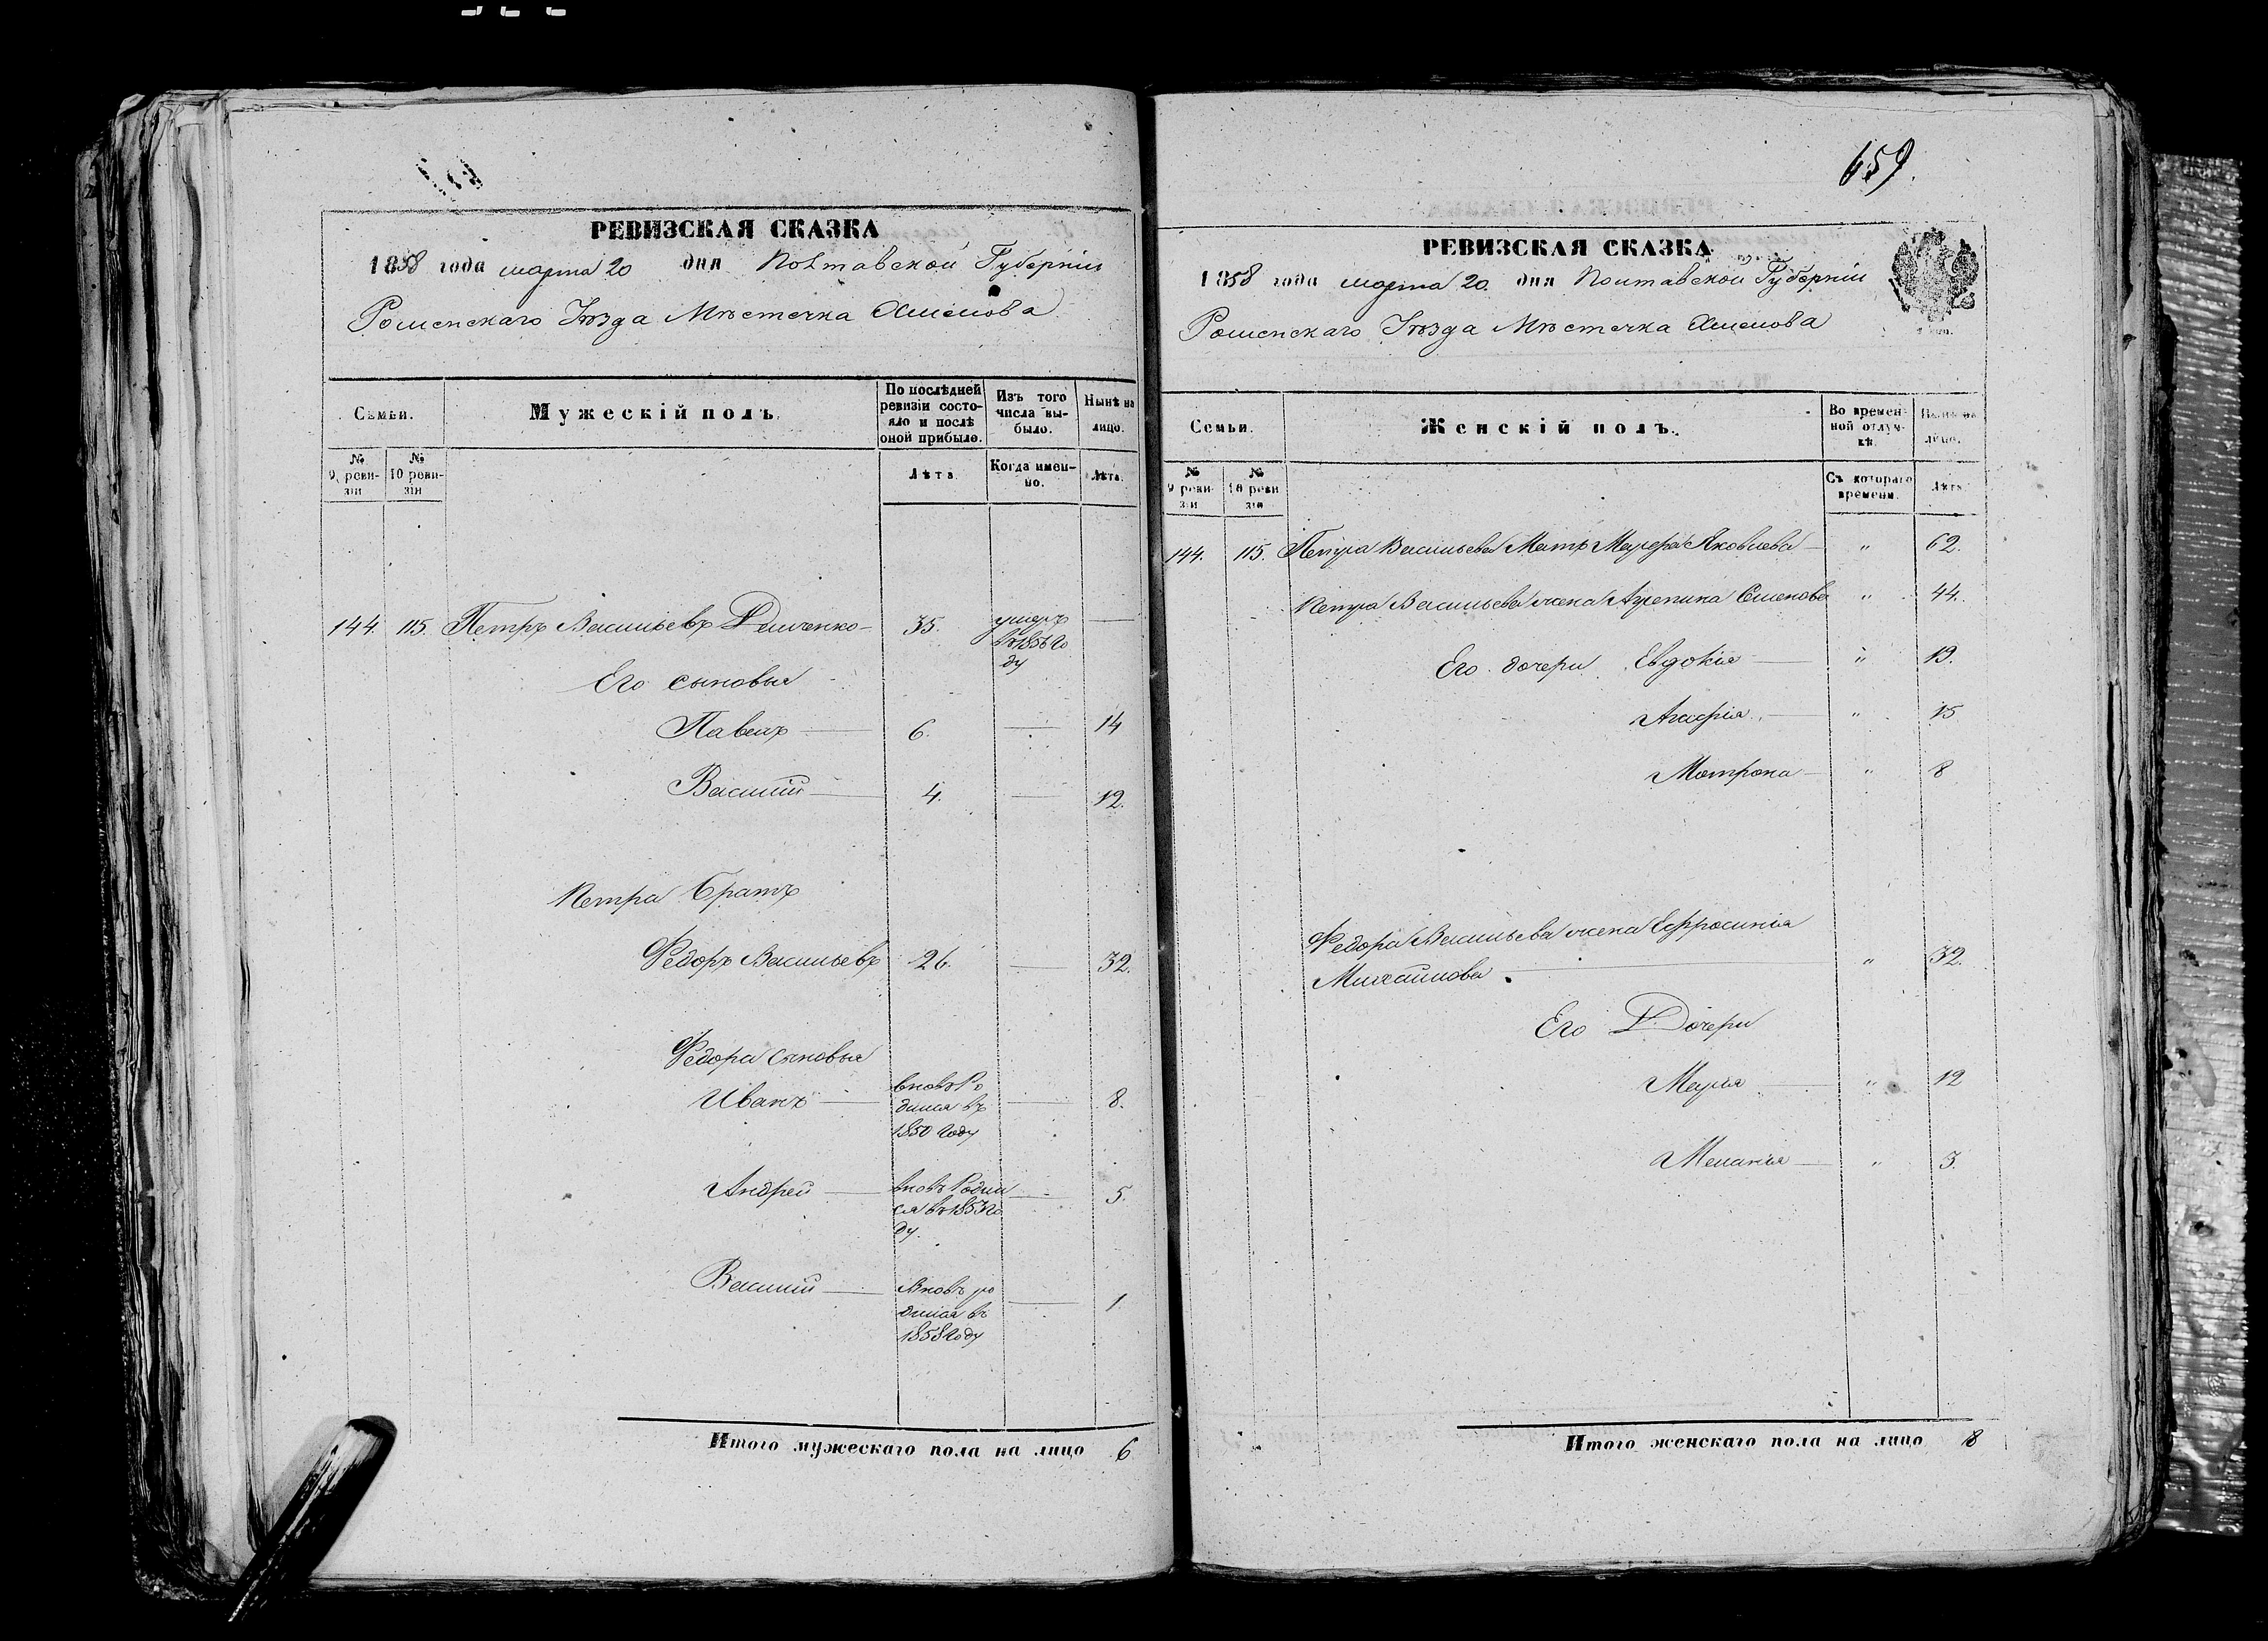 РЕВИЗСКАЯ СКАЗКА
1858 года марта 20 дня Полтавской Губерніи
Роменскаго Уѣзда Мѣстечка Хмелова
Семьи.
Мужескій полъ.
По послѣдней ревизіи состояло и послѣ оной прибыло.
Изъ того числа выбыло.
Нынѣ на лицо.
№ 9 ревизіи
№ 10 ревизіи
Лѣта
Когда именно.
Лѣта.
144. 115. Петръ Васильевъ Демченко 35. умеръ
въ 1856 го
ду
Его сыновья
Павелъ 6. 14
Василій 4. 12.
Петра Братъ
Федоръ Васильевъ 26. 32.
Федора сыновья
Иванъ вновь Ро
дился въ
1850 году 8.
Андрей вновь Родил
ся въ 1853 го
ду. 5.
Василій Вновь ро
дился въ
1858 году 1
Итого мужескаго пола на лицо 6
659.
РЕВИЗСКАЯ СКАЗКА
1858 года марта 20. дня Полтавской Губерніи
Роменскаго Уѣзда Мѣстечка Хмелова
Семьи.
Женскій полъ.
Во временной отлучкѣ.
Нынѣ на лицо.
№ 9 ревизіи
№ 10 ревизіи
Съ котораго времени.
Лѣта
144. 115. Петра Васильева Мать Марфа Яковлева " 62.
Петра Васильева жена Агрепина Семенова " 44.
Его дочери Евдокія " 19.
Агафія " 15
Мотрона " 8
Федора Васильева жена Ефросинія
Михайлова " 32.
Его Дочери
Марія " 12
Меланія " 3.
Итого женскаго пола на лицо 8